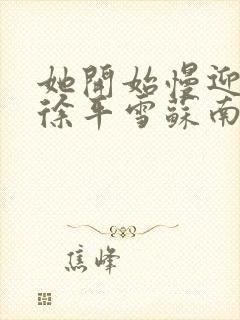 她開始慢迎
徐年雪蘇南
焦峰